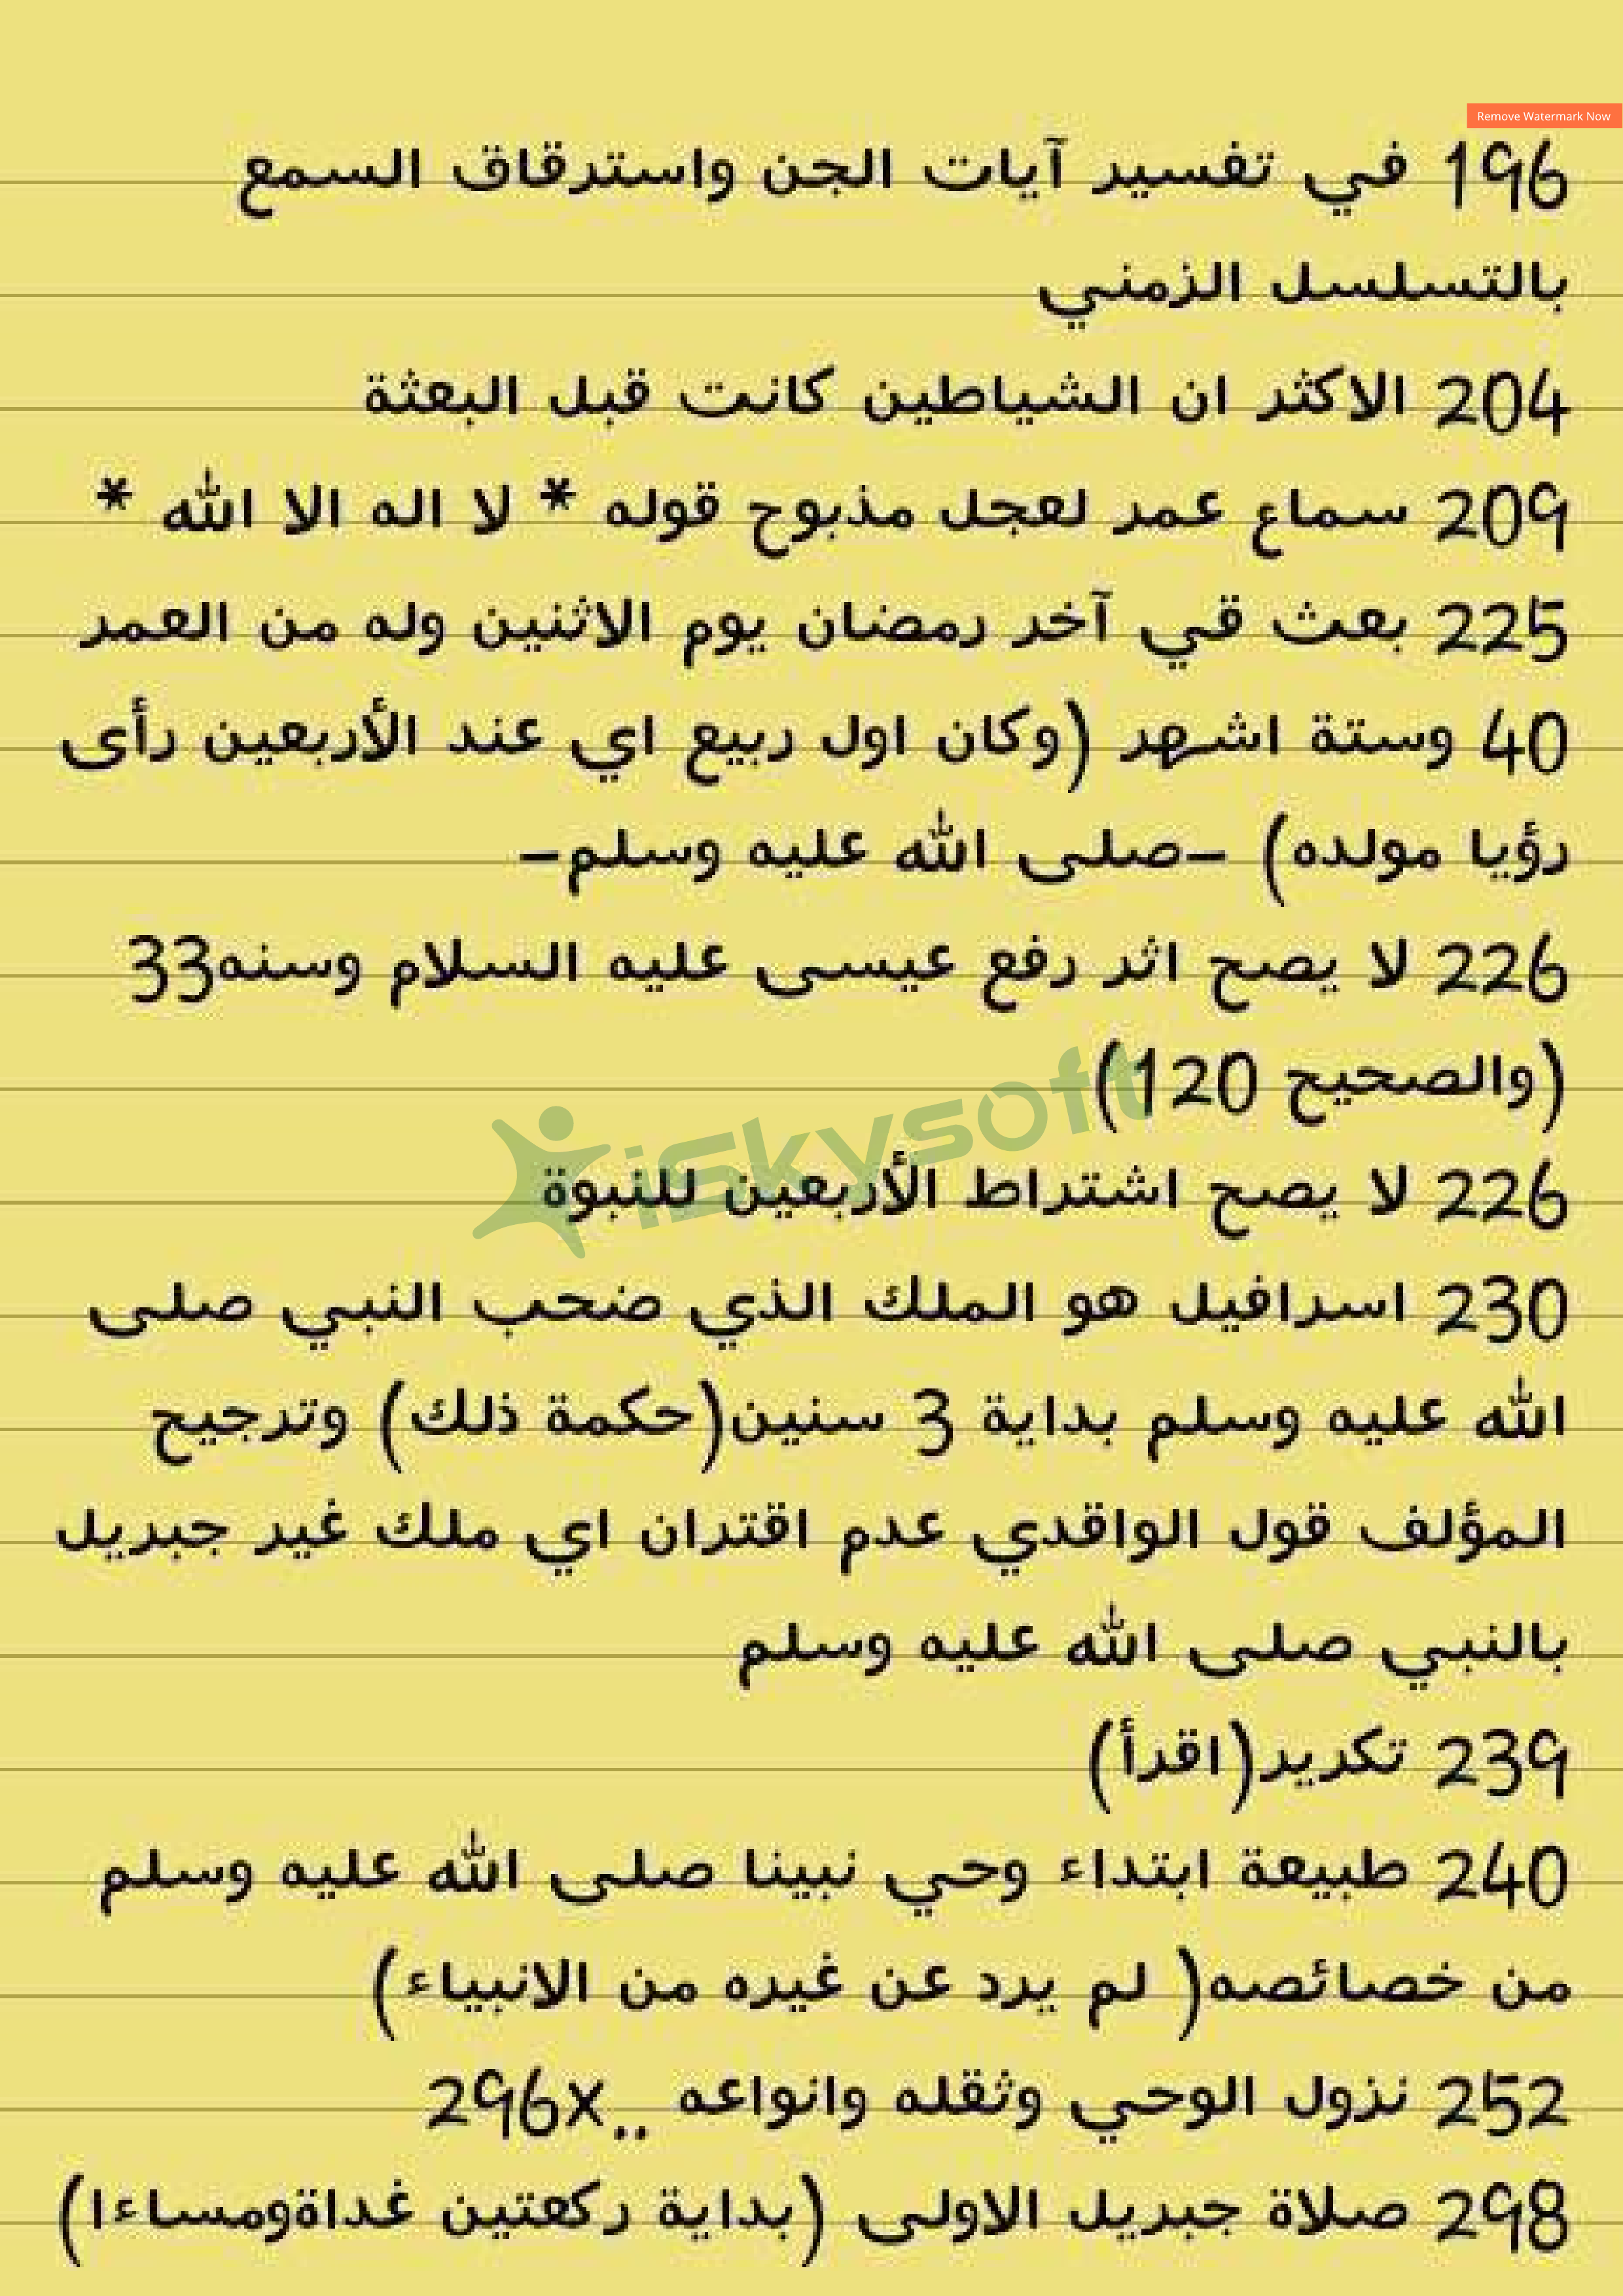 Remove Watermark Now
196 في تفسير آيات الجن واسترقاق السمع
بالتسلسل الزمني
204 الاكثر ان الشياطين كانت قبل البعثة
209 سماع عمر لعجل مذبوح قوله * لا اله الا الله *
225 بعث قي آخر رمضان يوم الاثنين وله من العمر
40 وستة اشهر (وكان اول ربيع اي عند الأربعين رأى
رؤيا مولده) -صلى الله عليه وسلم-
226 لا يصح اثر رفع عيسى عليه السلام وسنه33
(والصحيح 120)
iskysoft
226 لا يصح اشتراط الأربعين للنبوة
230 اسرافيل هو الملك الذي ضحب النبي صلى
الله عليه وسلم بداية 3 سنين(حكمة ذلك) وترجيح
المؤلف قول الواقدي عدم اقتران اي ملك غير جبريل
بالنبي صلى الله عليه وسلم
239 تكرير(اقرأ)
240 طبيعة ابتداء وحي نبينا صلى الله عليه وسلم
من خصائصه( لم يرد عن غيره من الانبياء)
252 نزول الوحي وثقله وانواعه ..296x
298 صلاة جبريل الاولى (بداية ركعتين غداةومساءا)